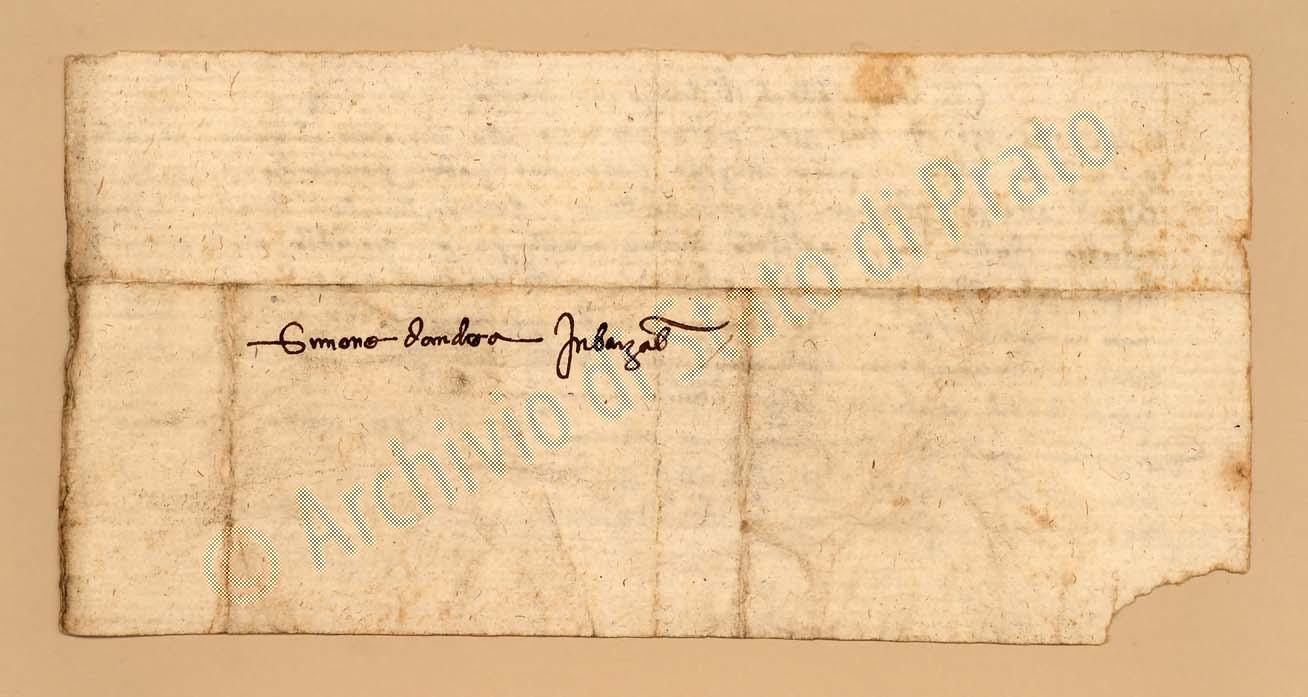 Simone d'andrea Inbarzalª
© Archivio di Stato di Prato